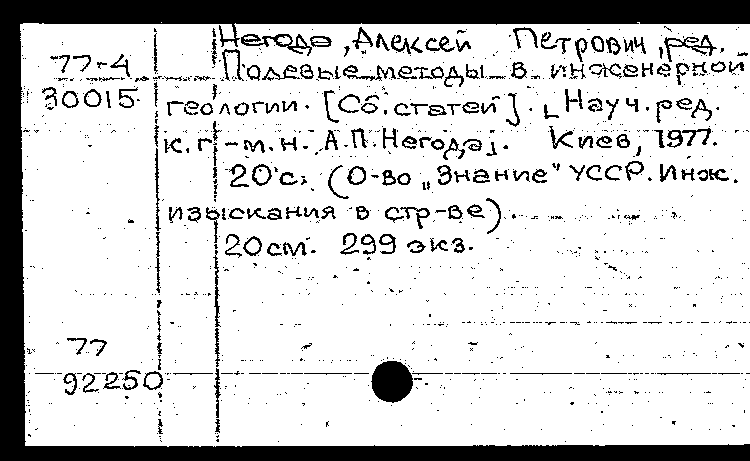 Негода, Алексей Петрович, ред.
77-4 Полевые методы в инженерной
30015 геологии. [Сб. статей]. [Науч. ред.
к.г.-м.н. А.П. Негода]. Киев, 1977.
20 с. (О-во „Знание" УССР. Инж.
изыскания в стр-ве).
20 см. 299 экз.
77
92250